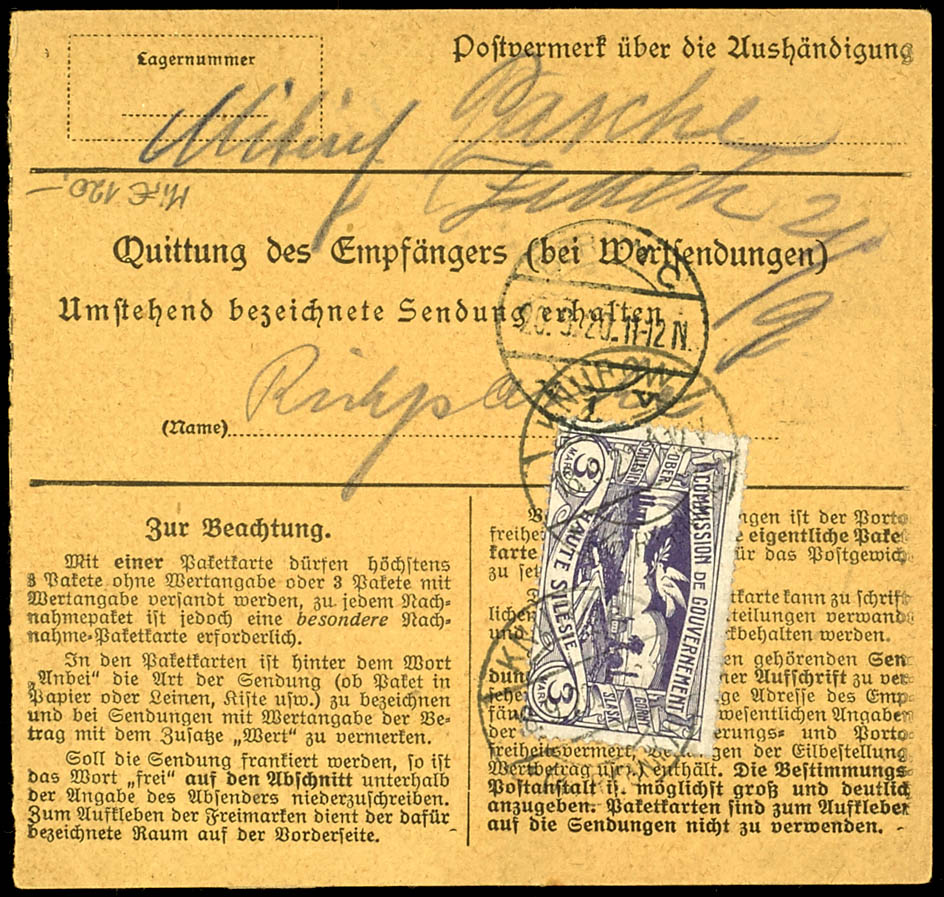 Lagernummer
Postvermerk über die Aushändigung
Mi.€ 120,-
Quittung des Empfängers (bei Wertsendungen)
Umstehend bezeichnete Sendung erhalten
20.9.20.11-12 N.
KNUROW
(Name)
Zur Beachtung.
Mit einer Paketkarte dürfen höchstens
3 Pakete ohne Wertangabe oder 3 Pakete mit
Wertangabe versandt werden, zu jedem Nach-
nahmepaket ist jedoch eine besondere Nach-
nahme-Paketkarte erforderlich.
In den Paketkarten ist hinter dem Wort
„Anbei“ die Art der Sendung (ob Paket in
Papier oder Leinen, Kiste usw.) zu bezeichnen
und bei Sendungen mit Wertangabe der Be-
trag mit dem Zusatze „Wert“ zu vermerken.
Soll die Sendung frankiert werden, so ist
das Wort „frei“ auf den Abschnitt unterhalb
der Angabe des Absenders niederzuschreiben.
Zum Aufkleben der Freimarken dient der dafür
bezeichnete Raum auf der Vorderseite.
ngen ist der Porto-
freihe e eigentliche Pake
karte ür das Postgewich
zu se
tkarte kann zu schrift
lichen teilungen verwand
un kbehalten werden.
en gehörenden Sen
dun ner Aufschrift zu ver
sehe ge Adresse des Emp-
fän wesentlichen Angaben
der erungs- und Porto-
freiheitsvermerk, gen der Eilbestellung
Wertbetrag usw.) enthält. Die Bestimmungs-
Postanstalt ist möglichst groß und deutlich
anzugeben. Paketkarten sind zum Aufkleben
auf die Sendungen nicht zu verwenden.
COMMISSION DE GOUVERNEMENT
HAUTE SILÉSIE
OBER
SCHLESIEN
GÓRNY
ŚLĄSK
3
MARK
3
MARK